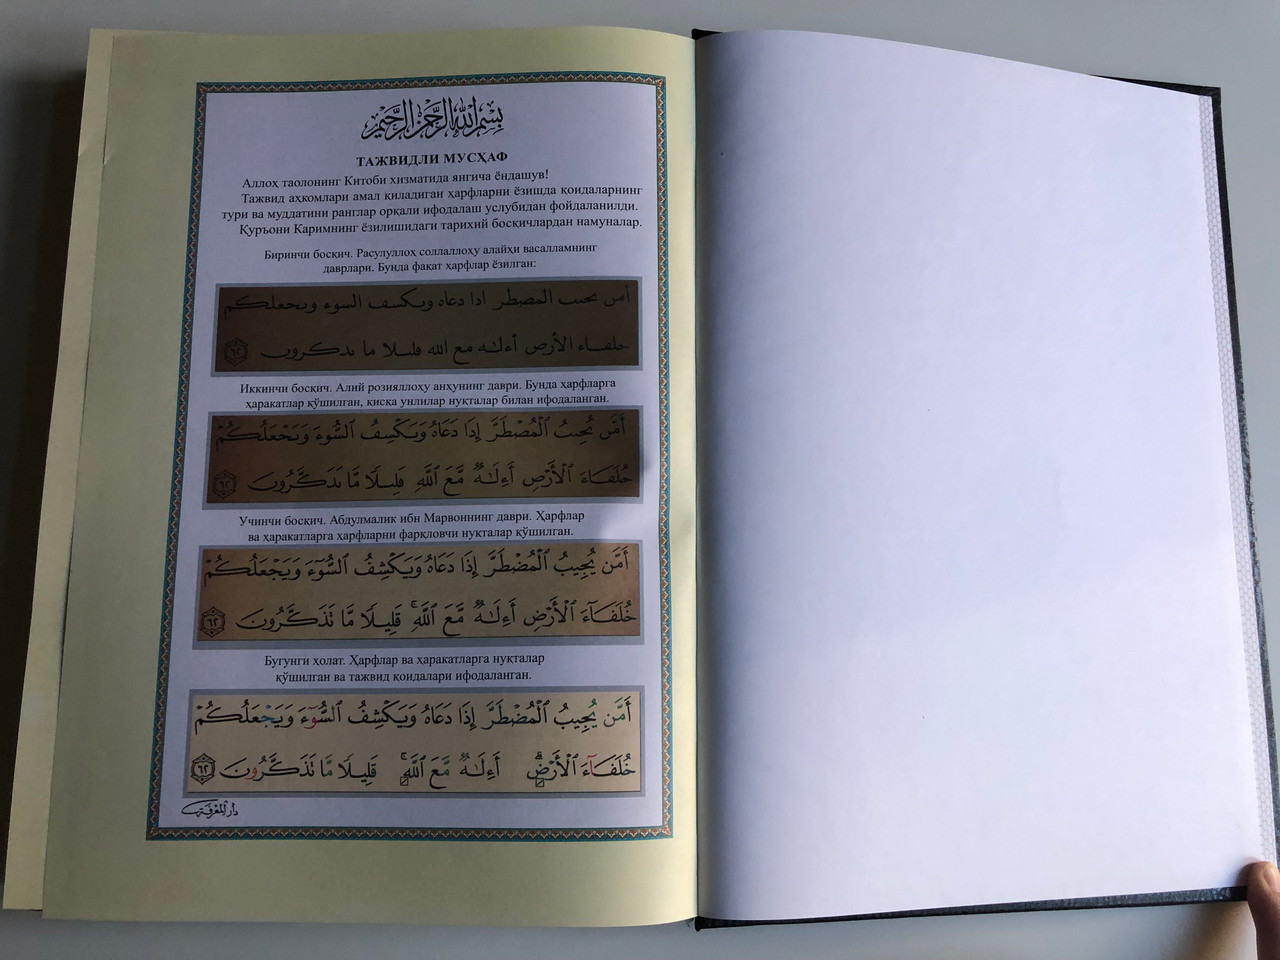 بِسْمِ اللَّهِ الرَّحْمَٰنِ الرَّحِيمِ
ТАЖВИДЛИ МУСҲАФ
Аллоҳ таолонинг Китоби хизматида янгича ёндашув!
Тажвид аҳкомлари амал қиладиган ҳарфларни ёзишда қоидаларнинг
тури ва муддатини ранглар орқали ифодалаш услубидан фойдаланилди.
Қуръони Каримнинг ёзилишидаги тарихий босқичлардан намуналар.
Биринчи босқич. Расулуллоҳ соллаллоҳу алайҳи васалламнинг
даврлари. Бунда фақат ҳарфлар ёзилган:
امں ٮحٮٮ المصطر ادا دعاه وٮكسف السوء وٮحعلكم
حلفاء الأرص أءلـٰه مع الله ڡلٮلا ما ٮدكروں ٦٢
Иккинчи босқич. Алий розияллоҳу анҳунинг даври. Бунда ҳарфларга
ҳаракатлар қўшилган, қисқа унлилар нуқталар билан ифодаланган.
أَمَّں ٮُحِٮٮُ ٱلْمُصْطَرَّ إِدَا دَعَاهُ وَٮَكْسِفُ ٱلسُّوٓءَ وَٮَحْعَلُكُمْ
حُلَفَاءَ ٱلْأَرْصِ أَءِلَـٰهٌ مَّعَ ٱللَّهِ ڡَلِٮلًا مَّا ٮَدَكَّرُوںَ ٦٢
Учинчи босқич. Абдулмалик ибн Марвоннинг даври. Ҳарфлар
ва ҳаракатларга ҳарфларни фарқловчи нуқталар қўшилган.
أَمَّن يُجِيبُ ٱلْمُضْطَرَّ إِذَا دَعَاهُ وَيَكْشِفُ ٱلسُّوٓءَ وَيَجْعَلُكُمْ
خُلَفَآءَ ٱلْأَرْضِ أَءِلَـٰهٌ مَّعَ ٱللَّهِ ۚ قَلِيلًا مَّا تَذَكَّرُونَ ٦٢
Бугунги ҳолат. Ҳарфлар ва ҳаракатларга нуқталар
қўшилган ва тажвид қоидалари ифодаланган.
أَمَّن يُجِيبُ ٱلْمُضْطَرَّ إِذَا دَعَاهُ وَيَكْشِفُ ٱلسُّوٓءَ وَيَجْعَلُكُمْ
خُلَفَآءَ ٱلْأَرْضِ ۗ أَءِلَـٰهٌ مَّعَ ٱللَّهِ ۚ قَلِيلًا مَّا تَذَكَّرُونَ ٦٢
دار المعرفة